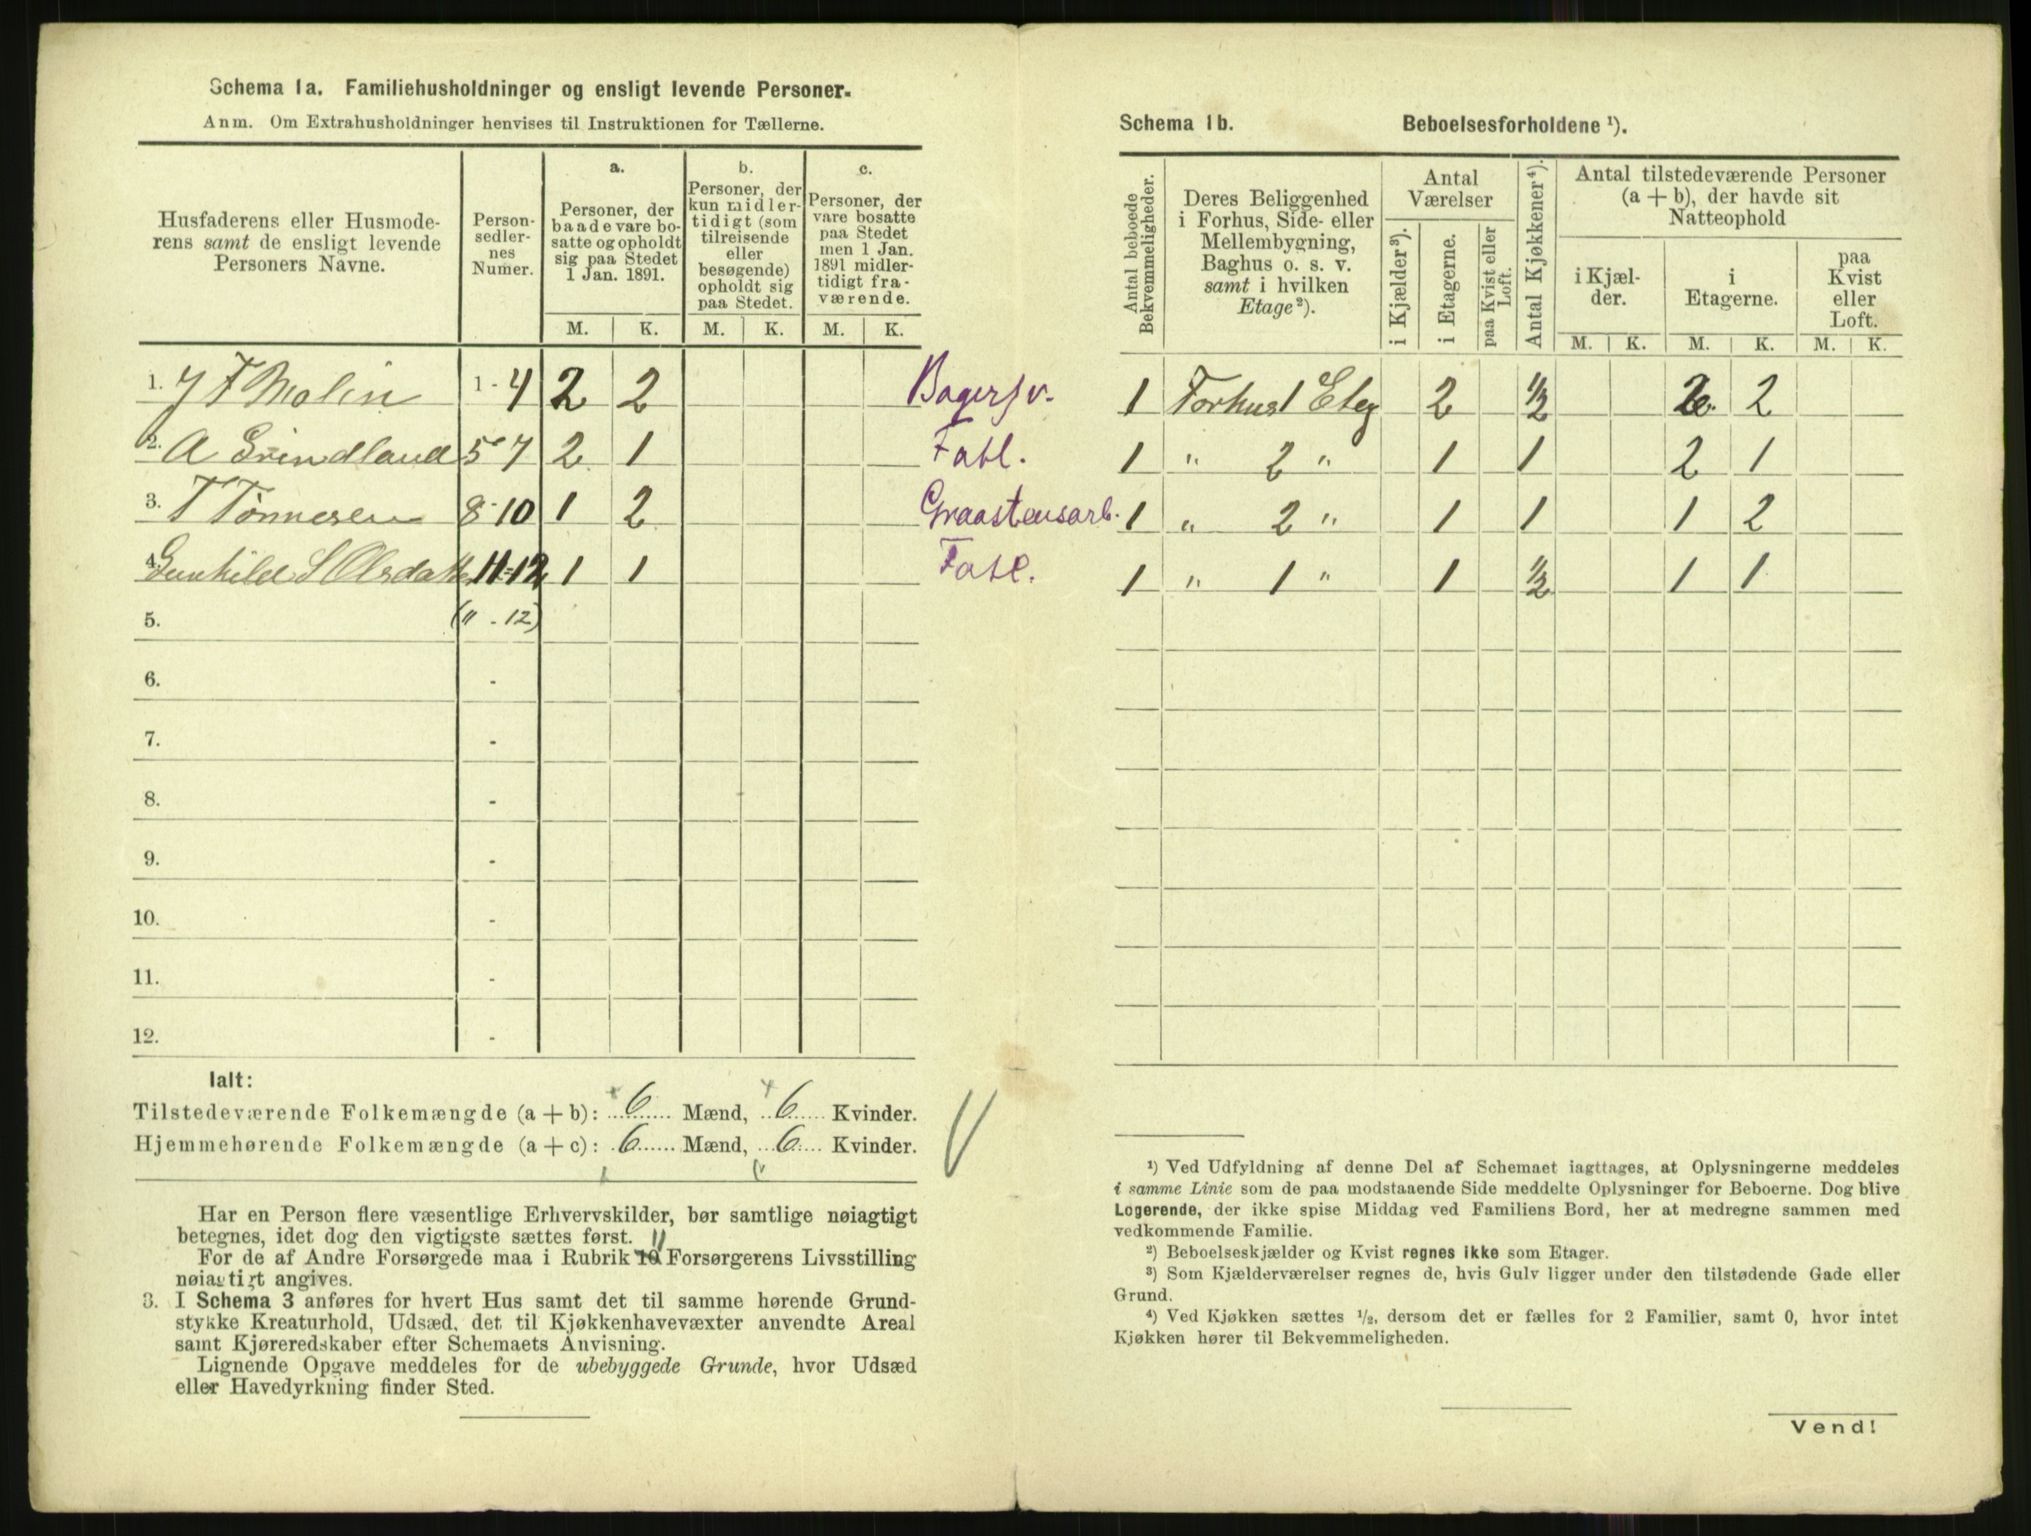 Schema 1a. Familiehusholdninger og ensligt levende Personer.
Anm. Om Extrahusholdninger henvises til Instruktionen for Tællerne.
Husfaderens eller Husmode-
rens samt de ensligt levende
Personers Navne.
Person-
sedler-
nes
Numer.
a.
Personer, der
baade vare bo-
satte og opholdt
sig paa Stedet
1 Jan. 1891.
b.
Personer, der
kun midler-
tidigt (som
tilreisende
eller
besøgende)
opholdt sig
paa Stedet.
c.
Personer, der
vare bosatte
paa Stedet
men 1 Jan.
1891 midler-
tidigt fra-
værende.
M. K. M. K. M. K.
1. J F Molin 1-4 2 2 Bagersv.
2. A Grindland 5-7 2 1 Fatl.
3. T Tønnesen 8-10 1 2 Graastensarb.
4. Gunhild S Olsdatter 11-12 1 1 Fatl.
5. (11-12)
6. -
7. -
8. -
9. -
10. -
11. -
12. -
Ialt:
Tilstedeværende Folkemængde (a + b): 6 Mænd, 6 Kvinder.
Hjemmehørende Folkemængde (a + c): 6 Mænd, 6 Kvinder.
Har en Person flere væsentlige Erhvervskilder, bør samtlige nøiagtigt
betegnes, idet dog den vigtigste sættes først.
For de af Andre Forsørgede maa i Rubrik 10 11 Forsørgerens Livsstilling
nøiagtigt angives.
3. I Schema 3 anføres for hvert Hus samt det til samme hørende Grund-
stykke Kreaturhold, Udsæd, det til Kjøkkenhavevæxter anvendte Areal
samt Kjøreredskaber efter Schemaets Anvisning.
Lignende Opgave meddeles for de ubebyggede Grunde, hvor Udsæd
eller Havedyrkning finder Sted.
Schema 1b. Beboelsesforholdene ¹).
Antal beboede
Bekvemmeligheder.
Deres Beliggenhed
i Forhus, Side- eller
Mellembygning,
Baghus o. s. v.
samt i hvilken
Etage²).
Antal
Værelser
i Kjælder³).
i Etagerne.
paa Kvist eller
Loft.
Antal Kjøkkener⁴).
Antal tilstedeværende Personer
(a + b), der havde sit
Natteophold
i Kjæl-
der.
i
Etagerne.
paa
Kvist
eller
Loft.
M. K. M. K. M. K.
1 Forhus 1 Etag 2 ½ 2 2
1 " 2 " 1 1 2 1
1 " 2 " 1 1 1 2
1 " 1 " 1 ½ 1 1
¹) Ved Udfyldning af denne Del af Schemaet iagttages, at Oplysningerne meddeles
i samme Linie som de paa modstaaende Side meddelte Oplysninger for Beboerne. Dog blive
Logerende, der ikke spise Middag ved Familiens Bord, her at medregne sammen med
vedkommende Familie.
²) Beboelseskjælder og Kvist regnes ikke som Etager.
³) Som Kjælderværelser regnes de, hvis Gulv ligger under den tilstødende Gade eller
Grund.
⁴) Ved Kjøkken sættes ½, dersom det er fælles for 2 Familier, samt 0, hvor intet
Kjøkken hører til Bekvemmeligheden.
Vend!